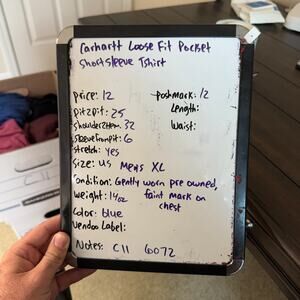 Carhartt Loose Fit Pocket
Shortsleeve Tshirt
price: 12
poshmark: 12
Pit2pit: 25
Length:
shoulder2Hem: 32
Waist:
sleevefrompit: 6
stretch: yes
Size: US Mens XL
Condition: Gently worn pre owned,
faint mark on
chest
weight: 14oz
Color: blue
Vendoo Label:
Notes: C11 6072